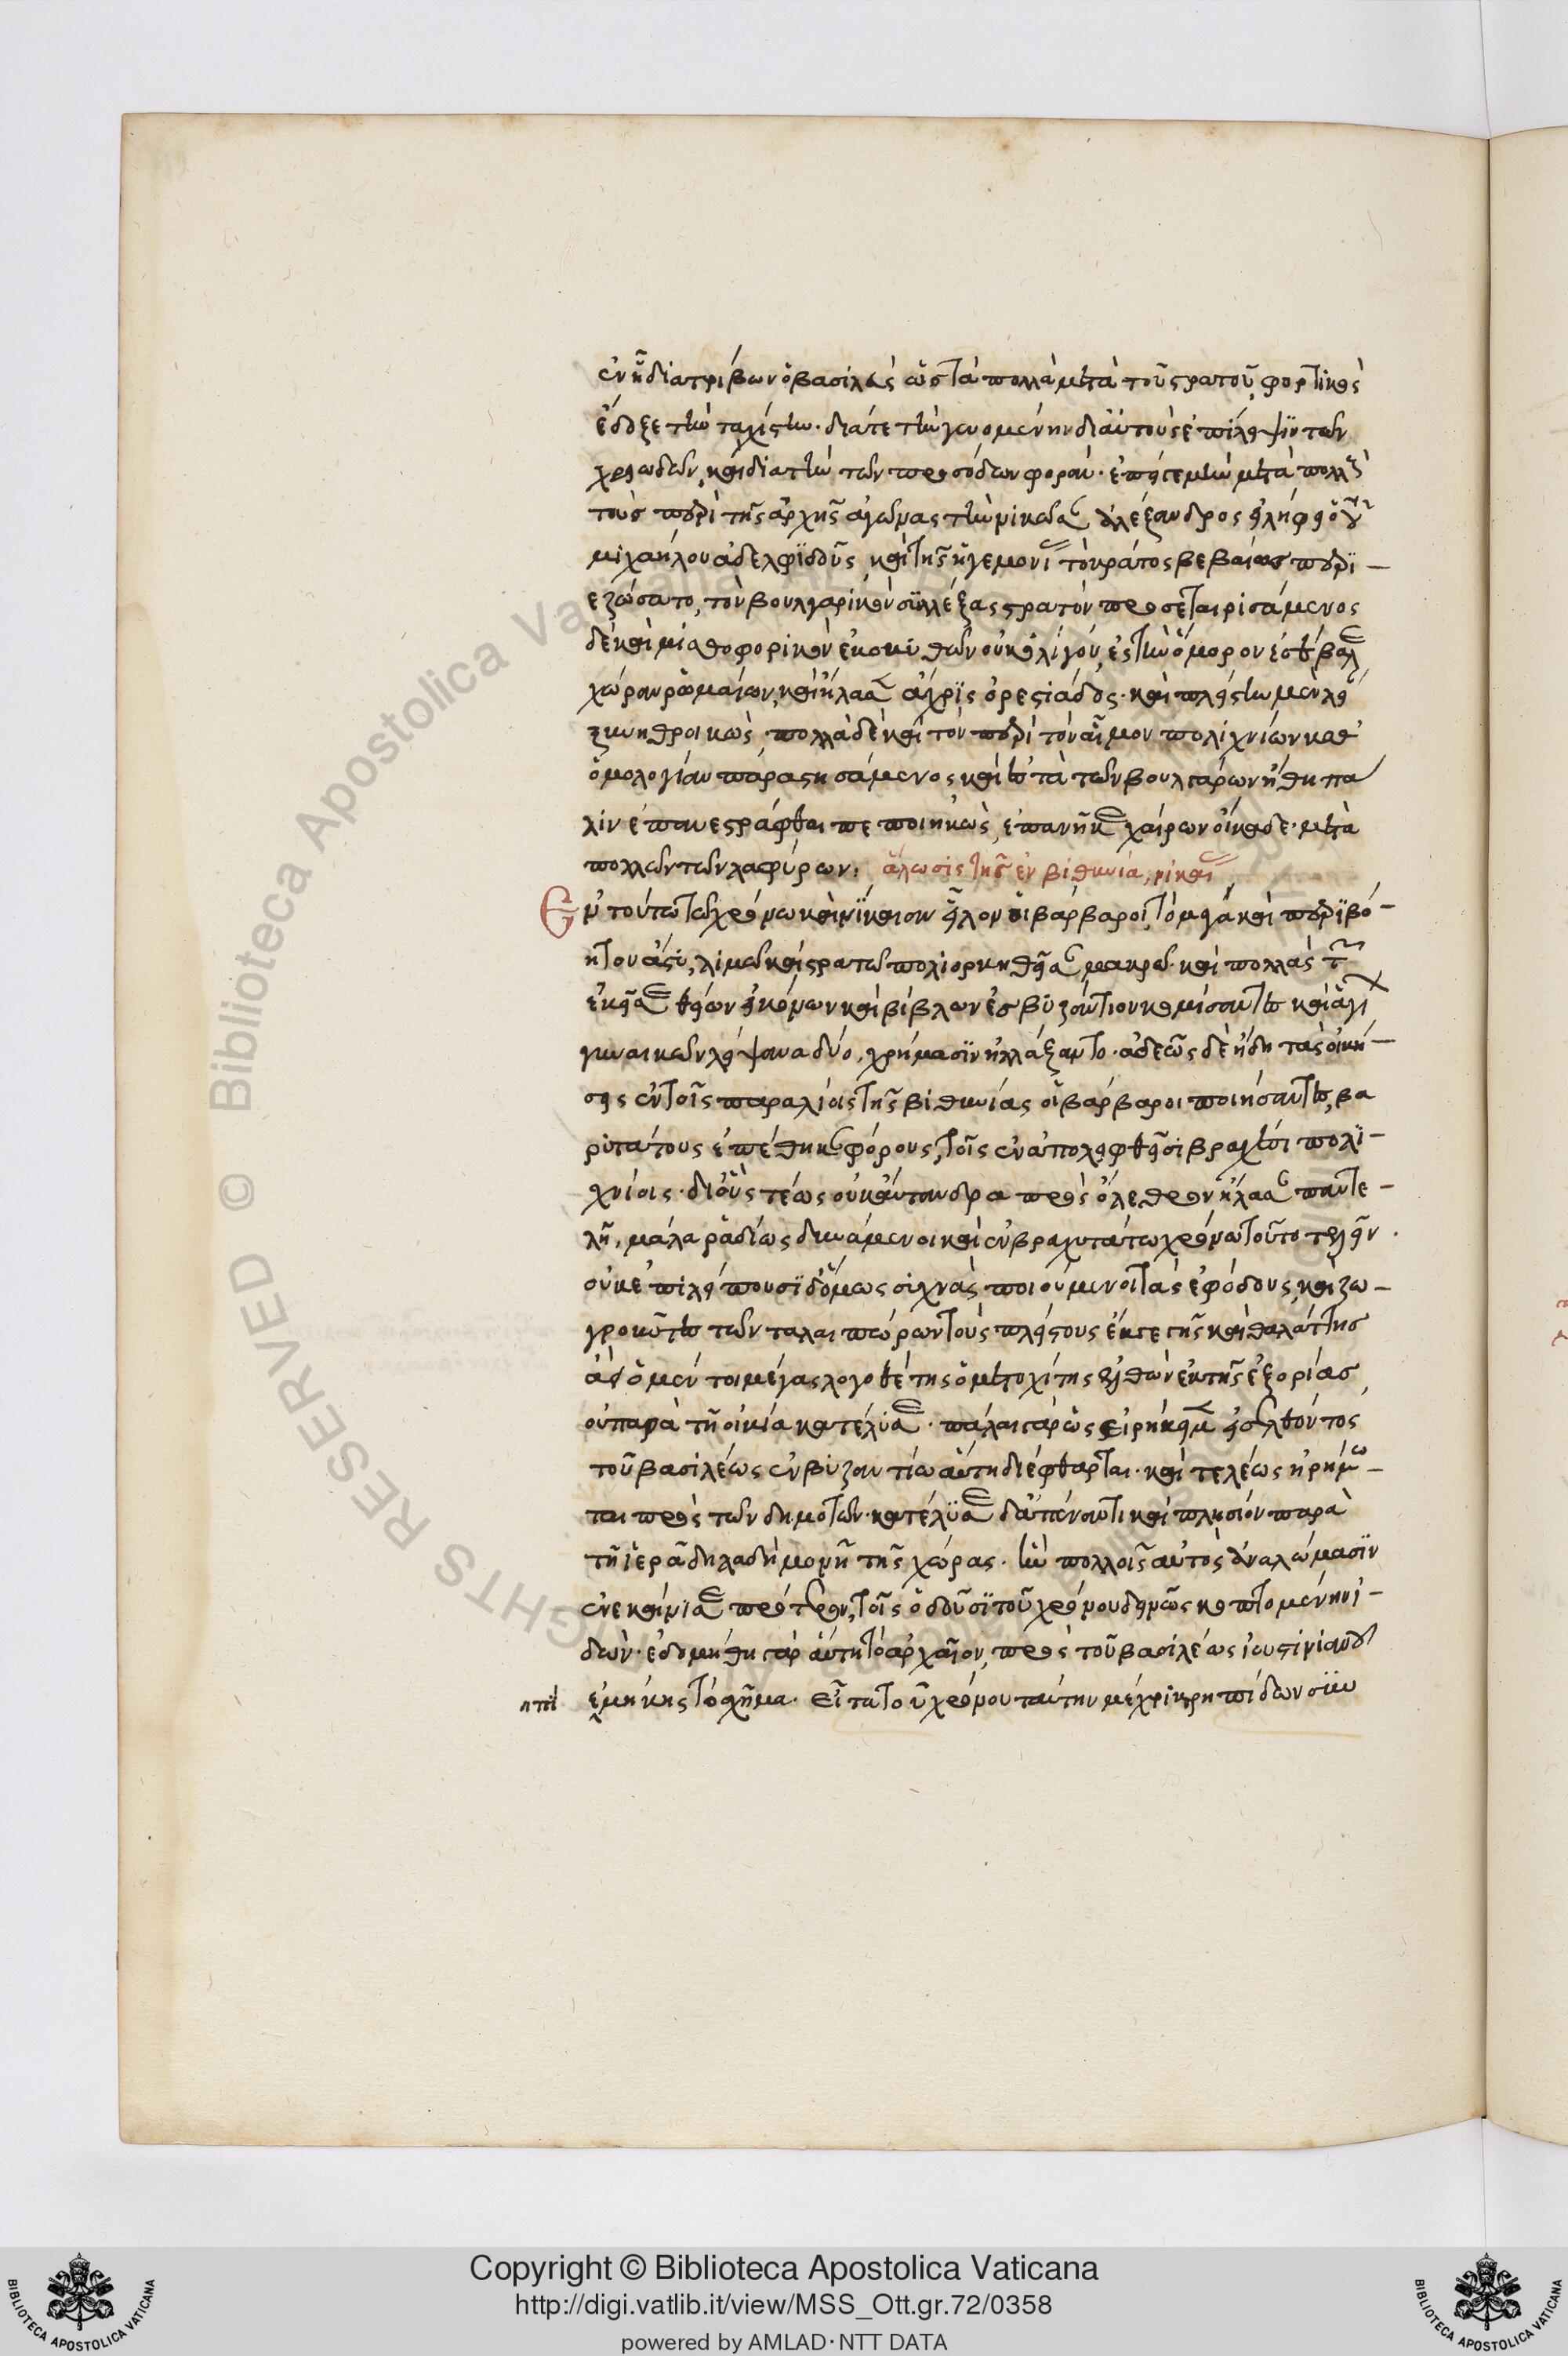 ἐν ᾗ διατρίβων ὁ βασιλεὺς ὡς τὰ πολλὰ μετὰ τοῦ στρατοῦ, φορτικὸς
ἔδοξε τὴν ταχίστην· διά τε τὴν γενομένην δι' αὐτοὺς ἐπίλειψιν τῶν
χρειωδῶν, καὶ διὰ τὴν τῶν προσόδων φοράν· ἐπεί γε μὴν μετὰ πολλοὺς
τοὺς περὶ τῆς ἀρχῆς ἀγῶνας τὴν νικῶσαν ἀλέξανδρος εἰλήφει ὁ τοῦ
μιχαήλου ἀδελφιδοῦς, καὶ τῆς ἡγεμονίας τὸ κράτος βεβαίως περι-
εζώσατο, τὸν βουλγαρικὸν συλλέξας στρατὸν προσεταιρισάμενος
δὲ καὶ μισθοφορικὸν ἐκ σκυθῶν οὐκ ὀλίγον, ἐς τὴν ὅμορον ἐσέβαλε
χώραν ῥωμαίων, καὶ ἤλασεν ἄχρις ὀρεστιάδος· καὶ πλείστην μὲν λείαν
ξυνηθροικὼς, πολλὰ δὲ καὶ τῶν περὶ τὸν αἷμον πολιχνίων καθ'
ὁμολογίαν παραστησάμενος καὶ ἐς τὰ τῶν βουλγάρων ἤθη πά
λιν ἐπανεστράφθαι πεποιηκὼς, ἐπανῆκε χαίρων οἴκαδε· μετὰ
πολλῶν τῶν λαφύρων: ἅλωσις τῆς ἐν βιθυνίᾳ νικαίας
Ἐν τούτῳ τῷ χρόνῳ καὶ νίκαιαν εἷλον οἱ βάρβαροι, τὸ μέγα καὶ περιβό-
ητον ἄστυ, λιμῷ καὶ στρατῷ πολιορκηθεῖσαν μακρῷ· καὶ πολλὰς τῶν
ἐκεῖσε θείων εἰκόνων καὶ βίβλων ἐς βυζάντιον κομίσαντες καὶ ἁγίων
γυναικῶν λείψανα δύο, χρήμασιν ἠλλάξαντο· ἀδεῶς δὲ ἤδη τὰς οἰκή-
σεις ἐν τοῖς παραλίοις τῆς βιθυνίας οἱ βάρβαροι ποιήσαντες, βα
ρυτάτους ἐπέθηκαν φόρους, τοῖς ἐναπολειφθεῖσι βραχέσι πολι-
χνίοις· δι' οὓς τέως οὐκ αὔτανδρα πρὸς ὄλεθρον ἤλασαν παντε-
λῆ, μάλα ῥᾳδίως δυνάμενοι καὶ ἐν βραχυτάτῳ χρόνῳ τοῦτο τελεῖν.
οὐκ ἐπιλείπουσι δ' ὅμως συχνὰς ποιούμενοι τὰς ἐφόδους, καὶ ζω-
γροῦντες τῶν ταλαιπώρων τοὺς πλείστους ἔκ τε γῆς καὶ θαλάττης
ἀλλ' ὁ μέν τοι μέγας λογοθέτης ὁ μετοχίτης ἐλθὼν ἐκ τῆς ἐξορίας,
οὐ παρὰ τῇ οἰκίᾳ κατέλυσε· πάλαι γὰρ ὡς εἰρήκειμεν εἰσελθόντος
τοῦ βασιλέως ἐν βυζαντίῳ αὕτη διέφθαρται· καὶ τελέως ἠρήμω-
ται πρὸς τῶν δημοτῶν· κατέλυσε δ' ἀπέναντι καὶ πλησίον παρὰ
τῇ ἱερᾷ δηλαδὴ μονῇ τῆς χώρας· ἣν πολλοῖς αὐτὸς ἀναλώμασιν
ἐνεκαίνισε πρότερον, τοῖς ὀδοῦσι τοῦ χρόνου δεινῶς κοπτομένην ἰ-
δών· ἐδομήθη γὰρ αὕτη τὸ ἀρχαῖον, πρὸς τοῦ βασιλέως ἰουστινιανοῦ
ἐμήκης τὸ σχῆμα· εἶτα τοῦ χρόνου ταύτην μέχρι κρηπίδων σὺν
Copyright © Biblioteca Apostolica Vaticana
http://digi.vatlib.it/view/MSS_Ott.gr.72/0358
powered by AMLAD·NTT DATA
BIBLIOTECA APOSTOLICA VATICANA
BIBLIOTECA APOSTOLICA VATICANA